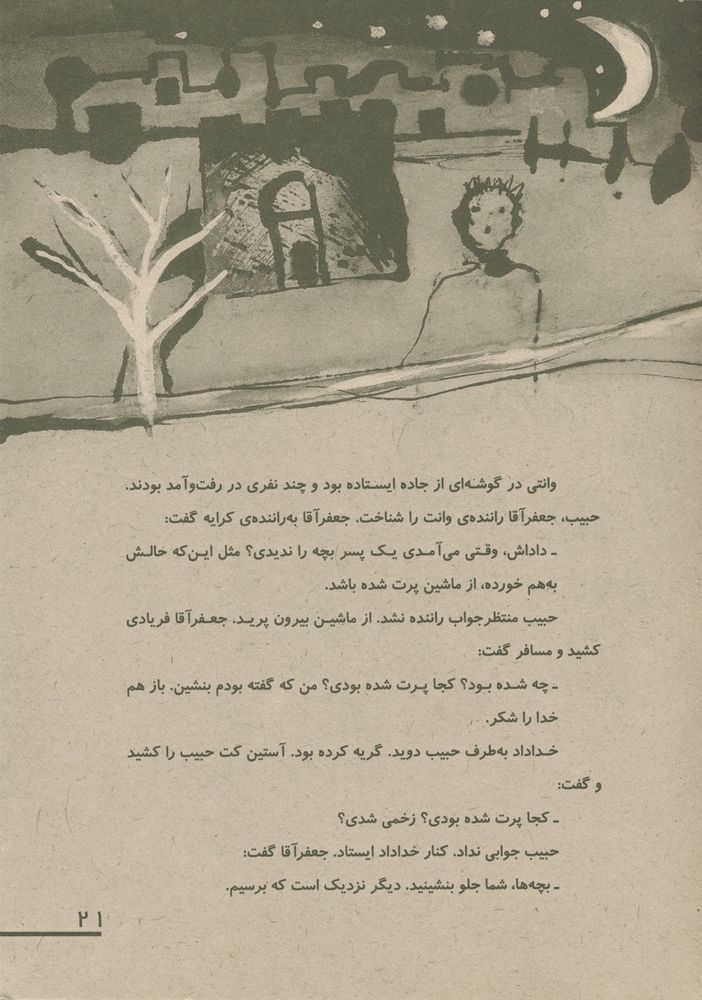 وانتی در گوشه‌ای از جاده ایستاده بود و چند نفری در رفت‌وآمد بودند.
حبیب، جعفرآقا راننده‌ی وانت را شناخت. جعفرآقا به‌راننده‌ی کرایه گفت:
ـ داداش، وقتی می‌آمدی یک پسر بچه را ندیدی؟ مثل این‌که حالش
به‌هم خورده، از ماشین پرت شده باشد.
حبیب منتظرجواب راننده نشد. از ماشین بیرون پرید. جعفرآقا فریادی
کشید و مسافر گفت:
ـ چه شده بود؟ کجا پرت شده بودی؟ من که گفته بودم بنشین. باز هم
خدا را شکر.
خداداد به‌طرف حبیب دوید. گریه کرده بود. آستین کت حبیب را کشید
و گفت:
ـ کجا پرت شده بودی؟ زخمی شدی؟
حبیب جوابی نداد. کنار خداداد ایستاد. جعفرآقا گفت:
ـ بچه‌ها، شما جلو بنشینید. دیگر نزدیک است که برسیم.
۲۱